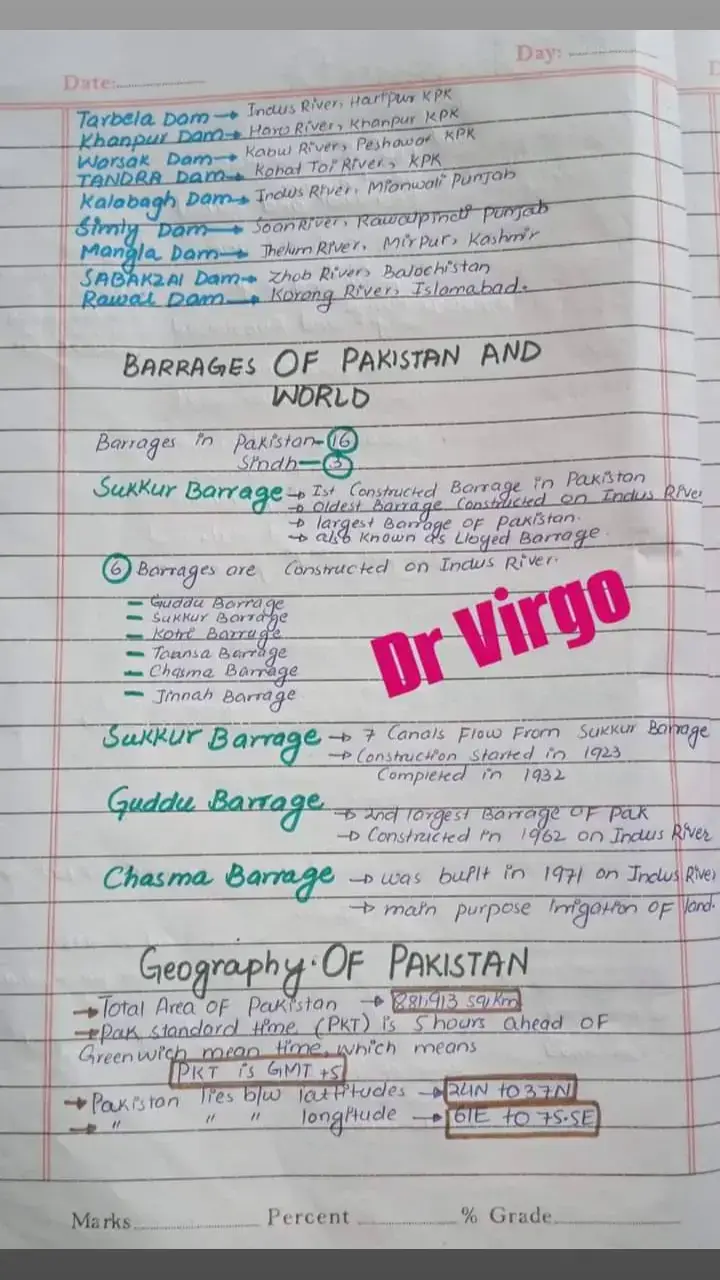 Day:
Date:
Tarbela Dam → Indus River, Haripur KPK
Khanpur Dam → Haro River, Khanpur KPK
Warsak Dam → Kabul River, Peshawar KPK
TANDRA Dam → Kohat Toi River, KPK
Kalabagh Dam → Indus River, Mianwali Punjab
Simly Dam → Soan River, Rawalpindi Punjab
Mangla Dam → Jhelum River, Mirpur, Kashmir
SABAKZAI Dam → Zhob River, Balochistan
Rawal Dam → Korang River, Islamabad.
BARRAGES OF PAKISTAN AND
WORLD
Barrages in Pakistan - 16
Sindh - 3
Sukkur Barrage → Ist Constructed Barrage in Pakistan
→ Oldest Barrage Constructed on Indus River
→ largest Barrage of Pakistan.
→ also known as Lloyed Barrage.
6 Barrages are Constructed on Indus River.
- Guddu Barrage
- Sukkur Barrage
- Kotri Barrage
- Taunsa Barrage
- Chasma Barrage
- Jinnah Barrage
Dr Virgo
Sukkur Barrage → 7 Canals Flow From Sukkur Barrage
→ Construction Started in 1923
Completed in 1932
Guddu Barrage → 2nd largest Barrage OF Pak
→ Constructed in 1962 on Indus River
Chasma Barrage → was built in 1971 on Indus River
→ main purpose Irrigation OF land.
Geography OF PAKISTAN
→ Total Area OF Pakistan → 881,913 sq/Km
→ Pak standard time (PKT) is 5 hours ahead OF
Greenwich mean time, which means
PKT is GMT +5
→ Pakistan lies b/w lattitudes → 24N to 37N
→ " " " longitude → 61E to 75.5E
Marks Percent % Grade